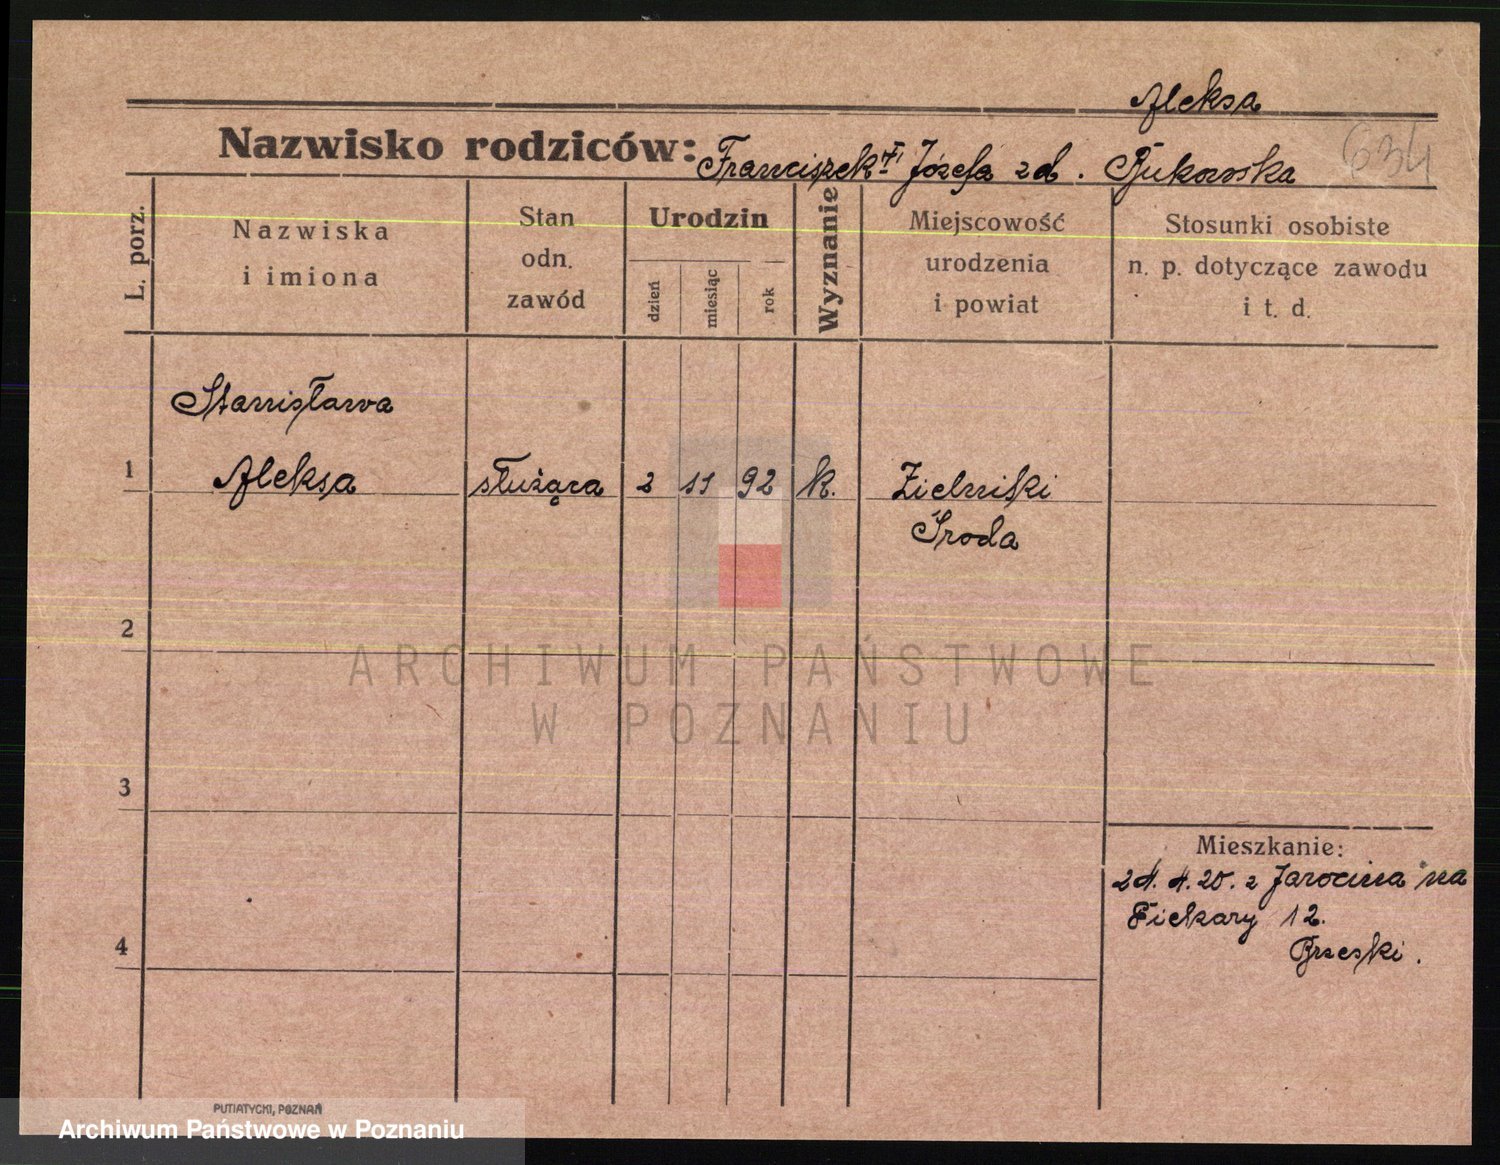 Aleksa
Nazwisko rodziców: Franciszek i Józefa z d. Bukowska
634
L. porz.
Nazwiska
i imiona
Stan
odn.
zawód
Urodzin
dzień
miesiąc
rok
Wyznanie
Miejscowość
urodzenia
i powiat
Stosunki osobiste
n. p. dotyczące zawodu
i t. d.
Stanisława
1 Aleksa służąca 2 11 92 k. Zielniki
Środa
2
3
4
Mieszkanie:
24. 4. 20. z Jarocina na
Piekary 12.
Brzeski.
PUTIATYCKI, POZNAŃ
ARCHIWUM PAŃSTWOWE
W POZNANIU
Archiwum Państwowe w Poznaniu